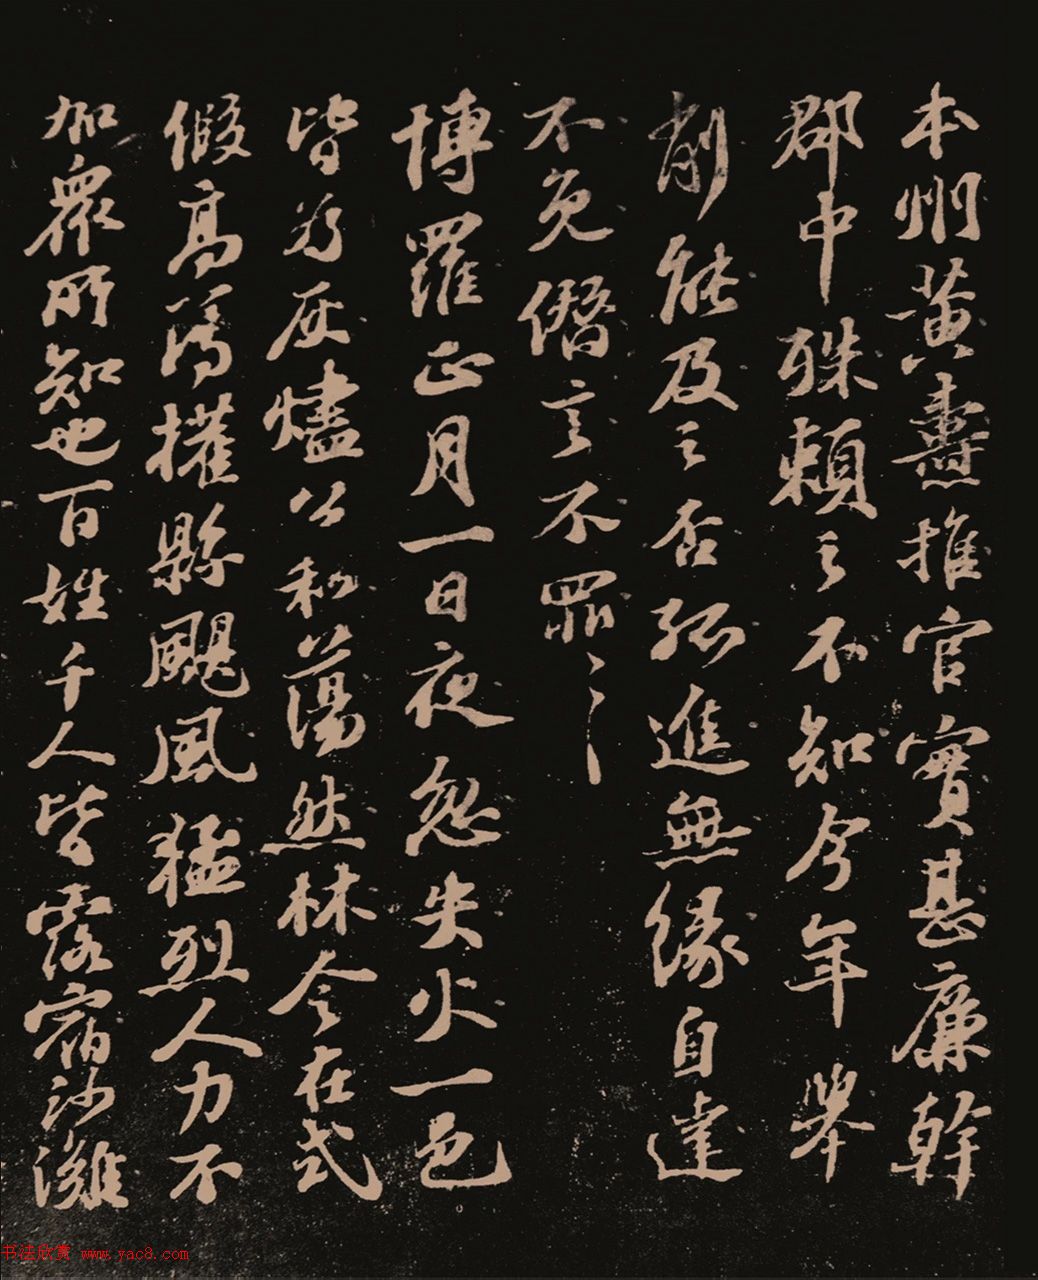 本州黃燾推官實甚廉幹
郡中殊賴之不知今年舉
削能及之否孤進無緣自達
不免僭言不罪〻〻
博羅正月一日夜忽失火一邑
皆為灰燼公私蕩然林令在式
假高簿權縣颶風猛烈人力不
加衆所知也百姓千人皆露宿沙灘
书法欣赏 www.yac8.com